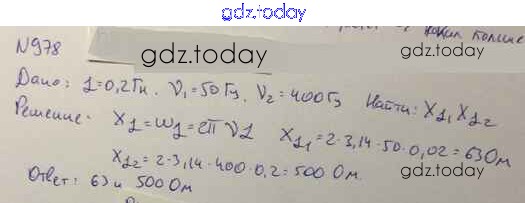 gdz.today
N978
gdz.today
gdz.today
Дано: L=0,2Гн. ν₁=50Гц, ν₂=400Гц Найти: X_L₁ X_L₂
Решение. X_L=ωL=2πνL X_L₁=2·3,14·50·0,02=63Ом
X_L₂=2·3,14·400·0,2=500 Ом.
gdz.today
Ответ: 63 и 500 Ом